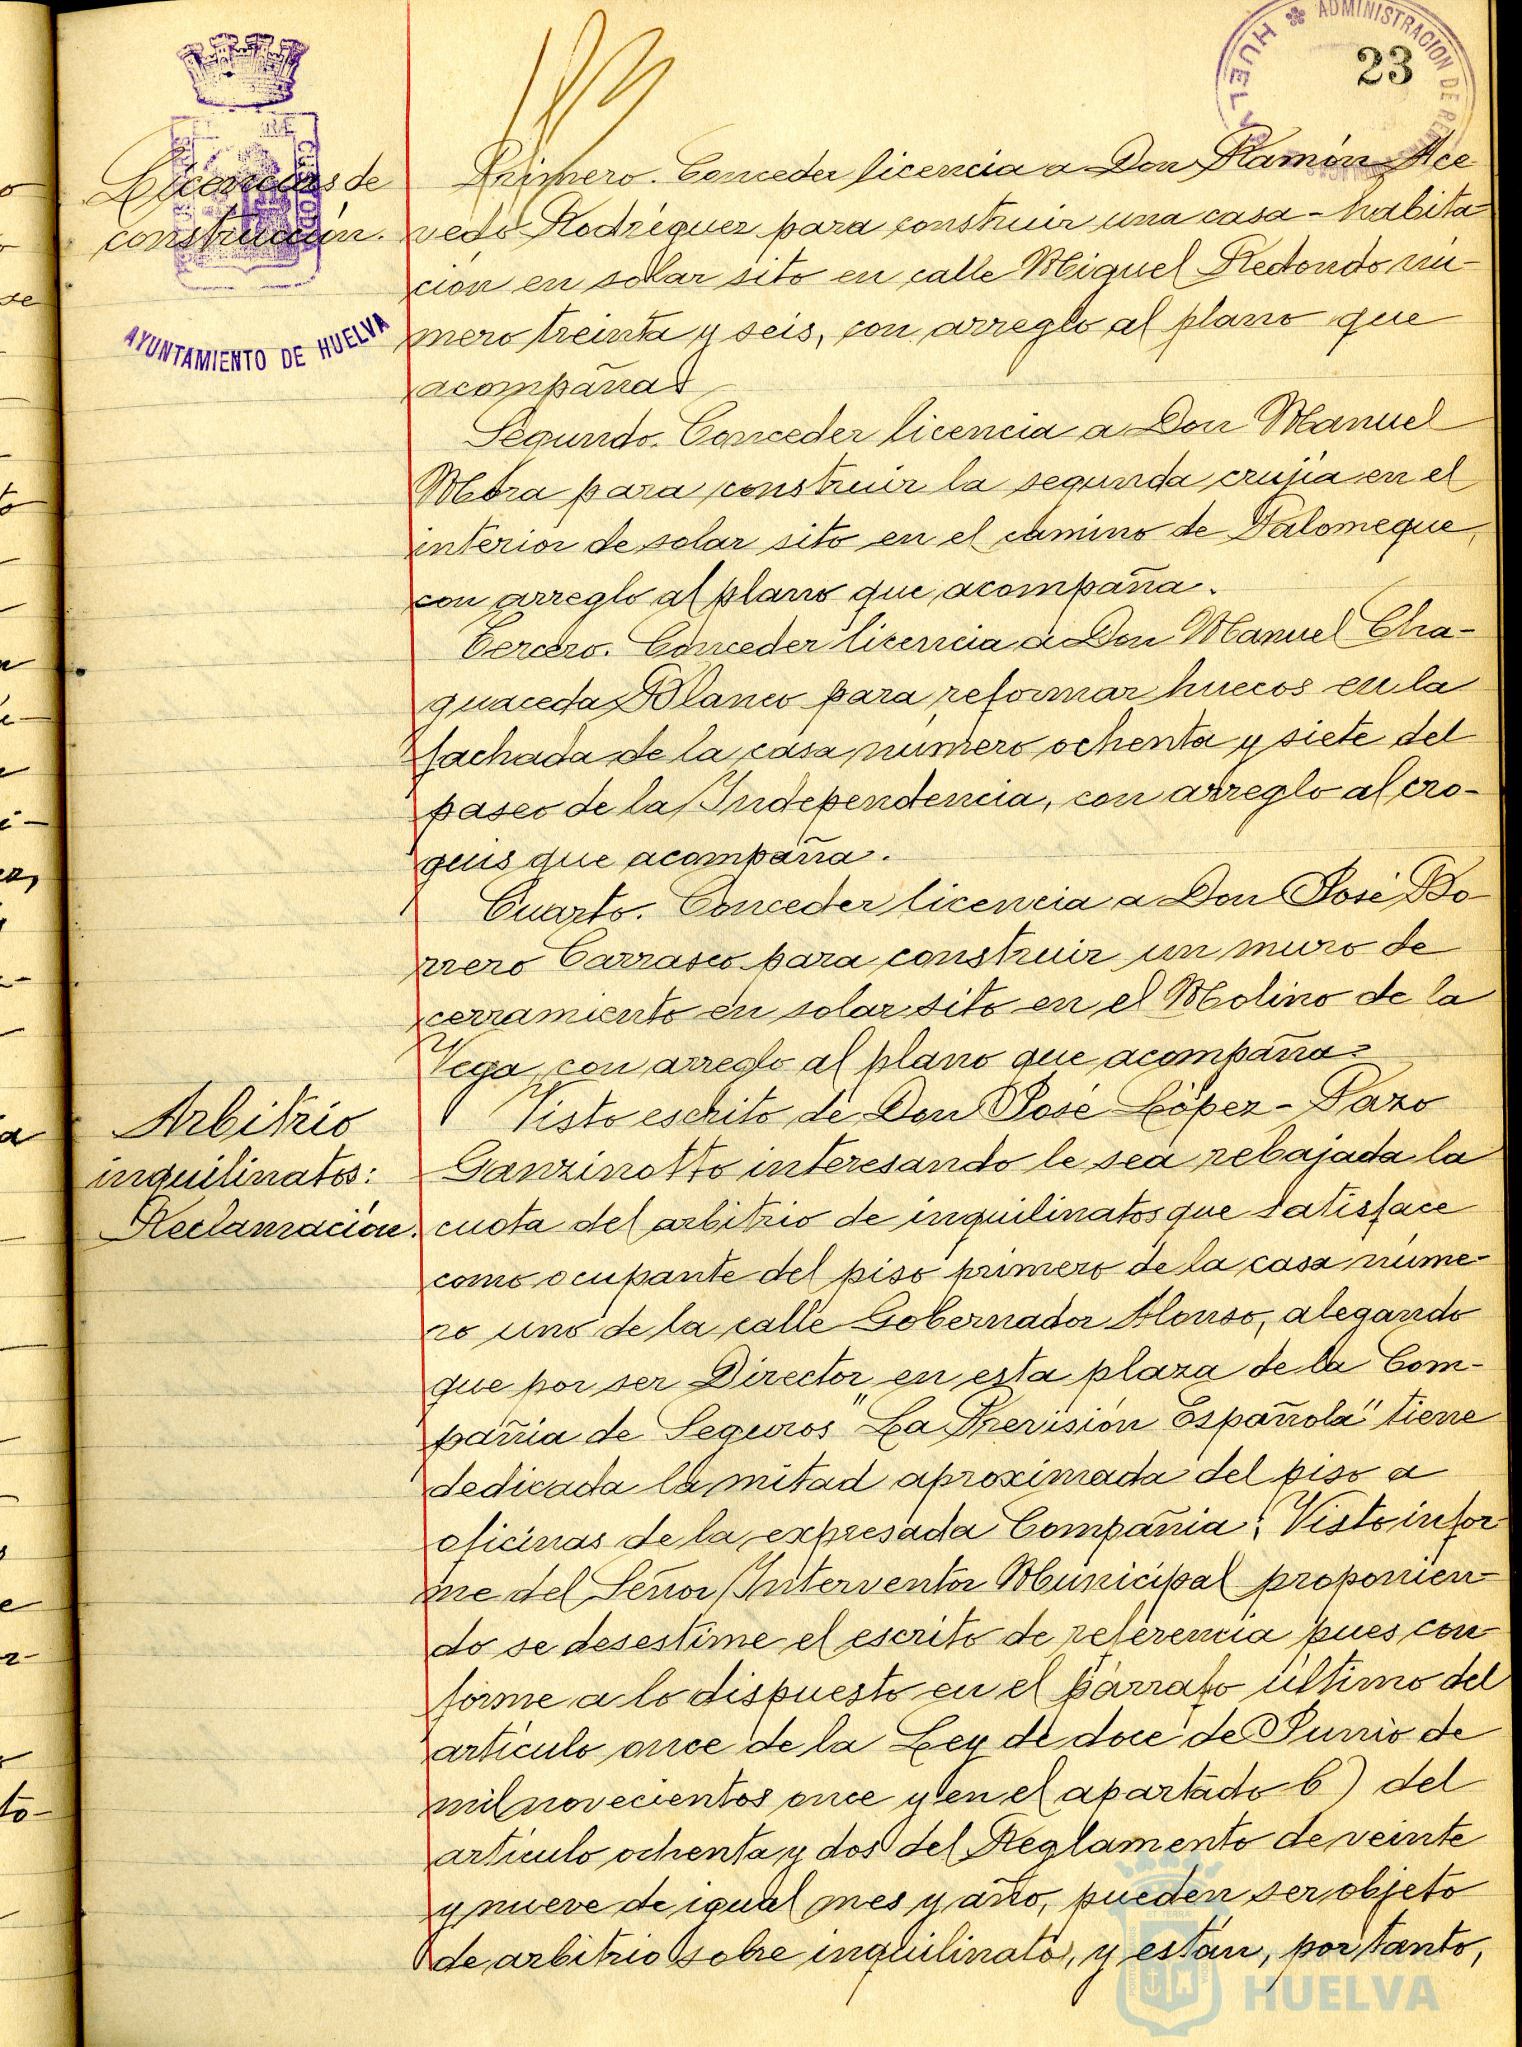 ADMINISTRACION DE RENTAS
HUELVA
23
Licencias de
construcción.
AYUNTAMIENTO DE HUELVA
Primero. Conceder licencia a Don Ramón Ace
vedo Rodríguez para construir una casa-habita-
ción en solar sito en calle Miguel Redondo nú-
mero treinta y seis, con arreglo al plano que
acompaña.
Segundo. Conceder licencia a Don Manuel
Mora para construir la segunda crujía en el
interior de solar sito en el camino de Palomeque,
con arreglo al plano que acompaña.
Tercero. Conceder licencia a Don Manuel Cha-
guaceda Blanco para reformar huecos en la
fachada de la casa número ochenta y siete del
paseo de la Independencia, con arreglo al cro-
quis que acompaña.
Cuarto. Conceder licencia a Don José Bo-
rrero Carrasco para construir un muro de
cerramiento en solar sito en el Molino de la
Vega, con arreglo al plano que acompaña.
Arbitrio
inquilinatos:
Reclamación.
Visto escrito de Don José López-Pazo
Ganzinotto interesando le sea rebajada la
cuota del arbitrio de inquilinatos que satisface
como ocupante del piso primero de la casa núme-
ro uno de la calle Gobernador Alonso, alegando
que por ser Director en esta plaza de la Com-
pañía de Seguros "La Previsión Española" tiene
dedicada la mitad aproximada del piso a
oficinas de la expresada Compañía; Visto infor
me del Señor Interventor Municipal proponien-
do se desestime el escrito de referencia pues con
forme a lo dispuesto en el párrafo último del
artículo once de la Ley de doce de Junio de
mil novecientos once y en el apartado b) del
artículo ochenta y dos del Reglamento de veinte
y nueve de igual mes y año, pueden ser objeto
de arbitrio sobre inquilinato, y están, por tanto,
HUELVA